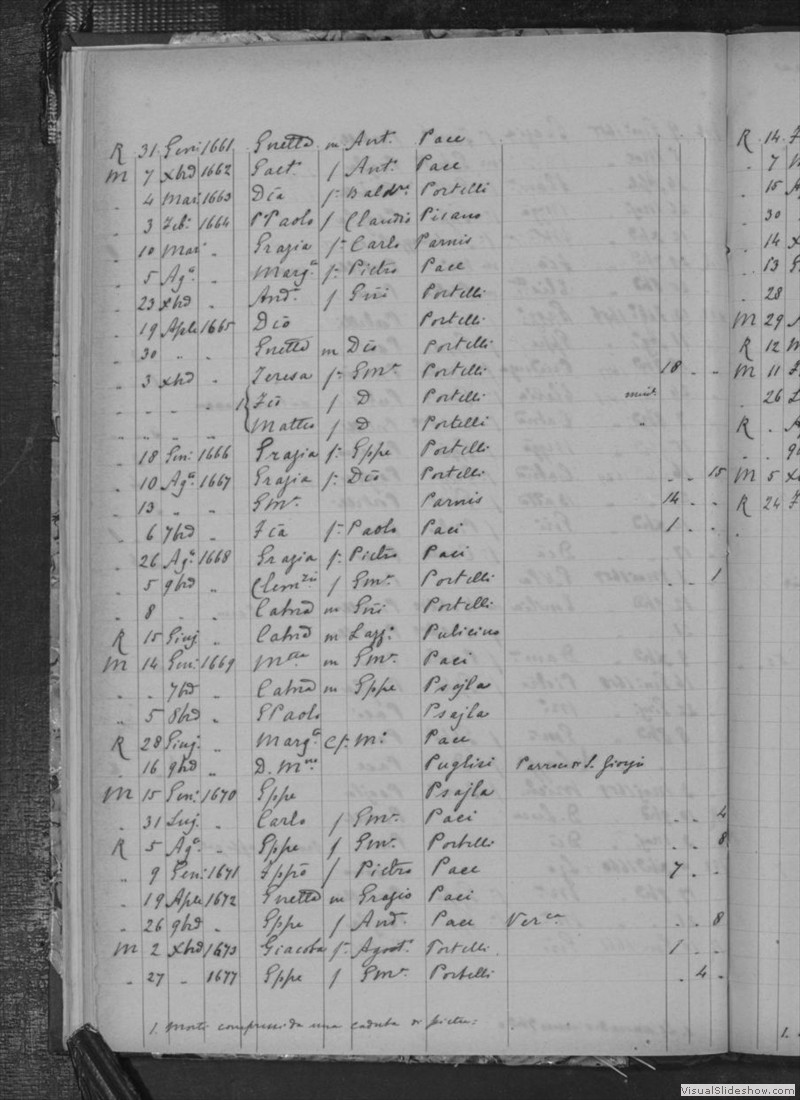 R 31 Gen: 1661 Gnetta m Ant. Pace
M 7 Xbd 1662 Gaet. f Ant. Pace
" 4 Mar: 1663 Dca f: Bald. Portelli
" 3 Feb: 1664 P Paolo f Claudio Pisano
" 10 Mar: " Grazia f: Carlo Parnis
" 5 Ag: " Marg.a f: Pietro Pace
" 23 Xbd " And. f Gñi Portelli
" 19 Aple 1665 Dco Portelli
" 30 " " Gnetta m Dco Portelli
" 3 Xbd " Teresa f: Em. Portelli 18 " "
" " " " 1 { f D Portelli
" " " " Matteo f D Portelli "
" 18 Gen: 1666 Grazia f: Gppe Portelli
" 10 Ag.a 1667 Grazia f: Dco Portelli " " 15
" 13 " " Em. Parnis 14 " "
" 6 7bd " f: Paolo Paci 1 " "
" 26 Ag.a 1668 Grazia f: Pietro Paci
" 5 9bd " f Em. Portelli " " 1
" 8 " " Catna m Gñi Portelli
R 15 Giug. " Catna m Laz: Pulicino
M 14 Gen: 1669 m Em. Paci
" " 7bd " Catna m Gppe Psajla
" 5 8bd " G Paolo Psajla
R 28 Giug. " Marg.a Pace
" 16 9bd " D. Puglisi Parroco S. Giorgio
M 15 Gen: 1670 Gppe Psajla
" 31 Lug. " Carlo f Em. Paci " " 4
R 5 Ag.a " Gppe f Em. Portelli " " 8
" 9 Gen: 1671 f Pietro Pace 7 " "
" 19 Aple 1672 Gnetta m Grazio Paci
" 26 9bd " Gppe f And. Pace " " 8
M 2 Xbd 1673 Giacoba f: Agost. Portelli 1 " "
" 27 " 1677 Gppe f Em. Portelli " 4 "
1. Morti compressi da una caduta di pietre:
R 14
" 7
" 15
" 30
" 14
" 13
" 28
M 29
R 12
M 11
" 26
R "
M 5
R 24
1.
VisualSlideshow.com